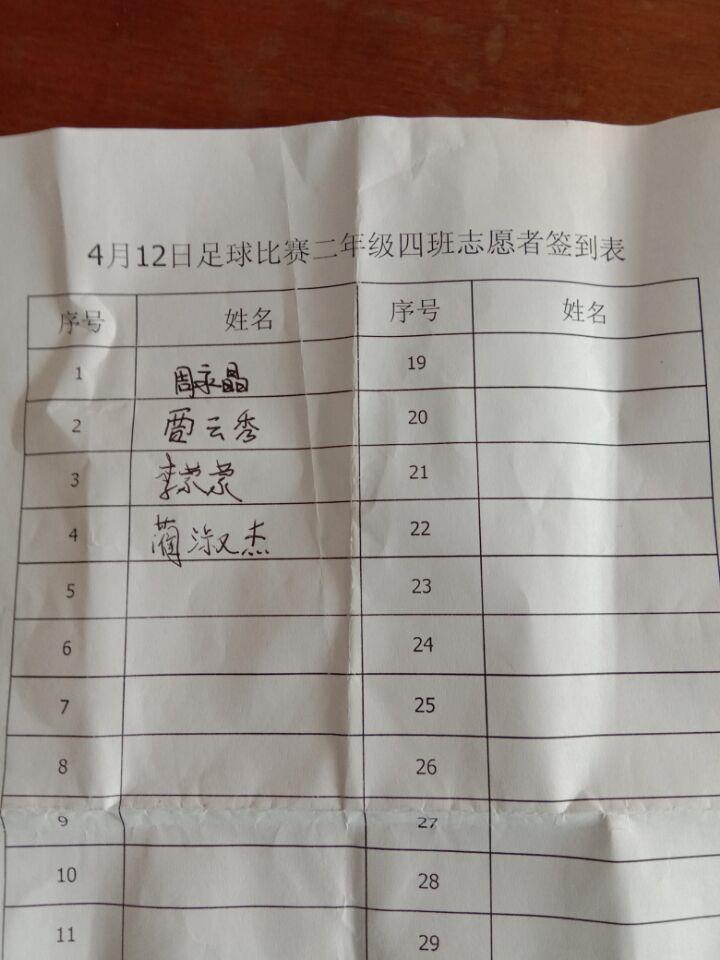 4月12日足球比赛二年级四班志愿者签到表
序号 姓名 序号 姓名
1 周永晶 19
2 贾云秀 20
3 李蒙蒙 21
4 蔺淑杰 22
5 23
6 24
7 25
8 26
9 27
10 28
11 29